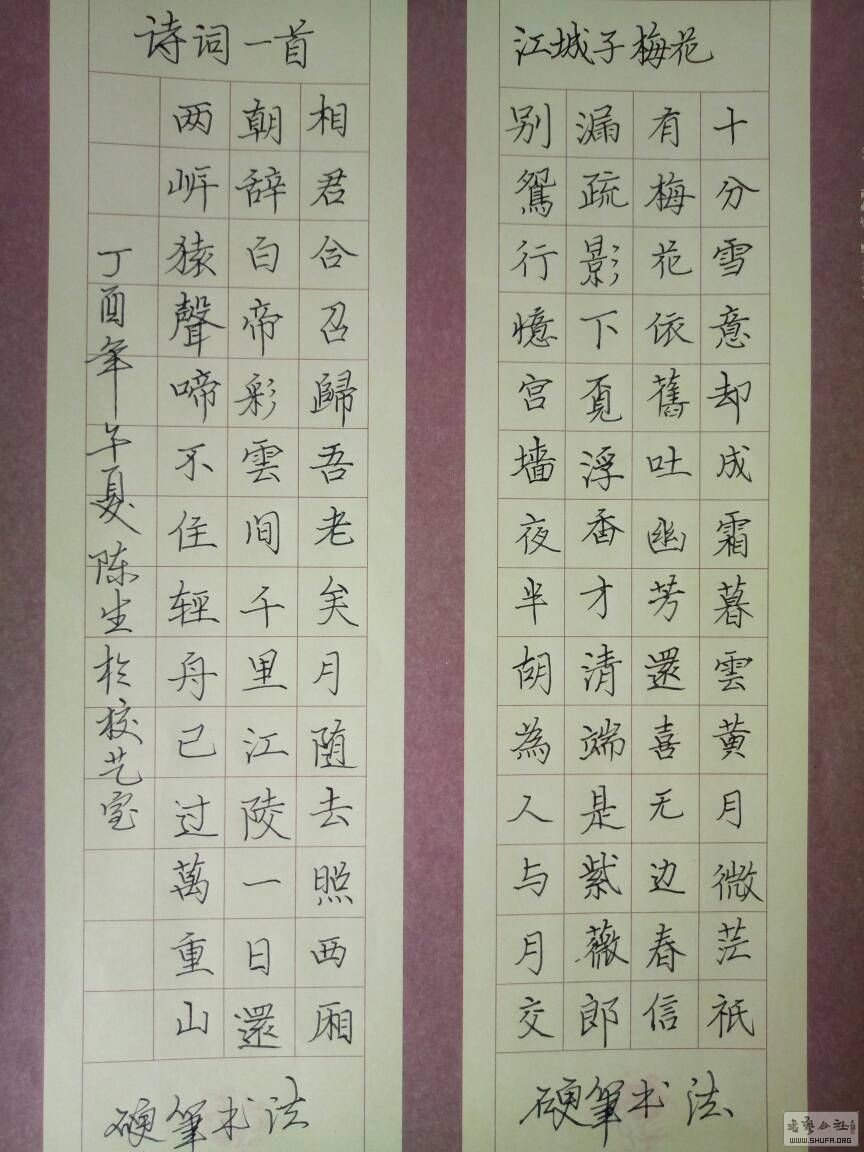 江城子梅花
十分雪意却成霜暮雲黄月微茫祇
有梅花依舊吐幽芳還喜无边春信
漏疏影下覓浮香才清端是紫薇郎
别鴛行憶宫墙夜半胡為人与月交
硬筆书法
诗词一首
相君合召歸吾老矣月随去照西厢
朝辞白帝彩雲间千里江陵一日還
两岸猿聲啼不住轻舟已过萬重山
丁酉年午夏陈生於校艺室
硬筆书法
WWW.SHUFA.ORG